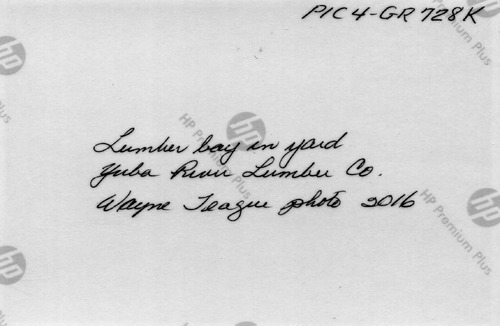 PIC 4-GR 728K
Lumber bay in yard
Yuba River Lumber Co.
Wayne Teague photo 2016
hp
HP Premium Plus
hp
HP Premium Plus
hp
HP Premium Plus
hp